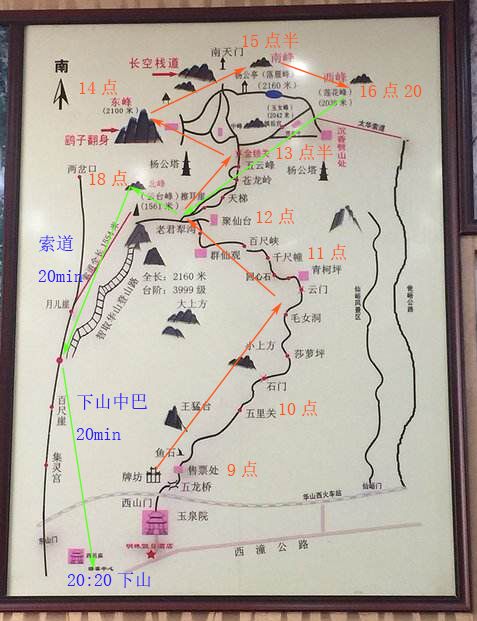 15 点半
南天门
长空栈道
南峰
杨公亭(落雁峰)
(2160 米)
西峰
(莲花峰)
16 点 20
南
14 点
东峰
(2100 米)
(玉女峰)
(2042 米)
中峰
太华索道
沉香劈山处
鹞子翻身
金锁关
13 点半
两岔口
杨公塔
五云峰
杨公塔
苍龙岭
18 点
北峰
(云台峰)
擦耳崖
(1561 米)
天梯
聚仙台
12 点
老君犁沟
百尺峡
群仙观
千尺幢
11 点
索道
20min
回心石
青柯坪
云门
全长:2160 米
台阶:3999 级
智取华山登山路
月儿崖
大上方
毛女洞
仙峪风景区
瓮峪公路
小上方
莎萝坪
石门
下山中巴
20min
王猛台
五里关
10 点
百尺崖
鱼石
集灵宫
牌坊
售票处
9 点
五龙桥
仙峪门
西山门
华山西火车站
玉泉院
东山门
西岳庙
西潼公路
20:20 下山